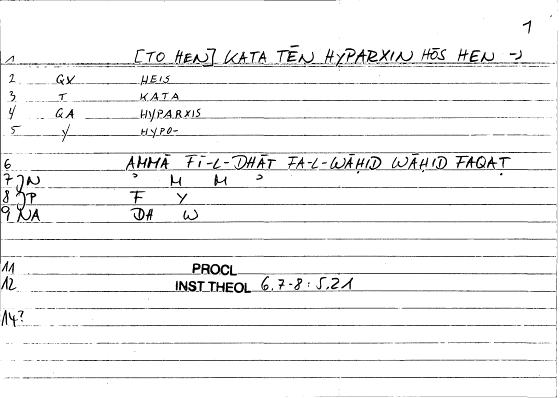 1
1 [TO HEN] KATA TĒN HYPARXIN HŌS HEN →
2 QV HEIS
3 T KATA
4 QA HYPARXIS
5 Y HYPO-
6 AMMĀ FĪ-L-DHĀT FA-L-WĀḤID WĀḤID FAQAṬ
7 N ʾ M M ʾ
8 P F Y
9 NA DH W
11 PROCL
12 INST THEOL 6.7-8 : 5.21
14?